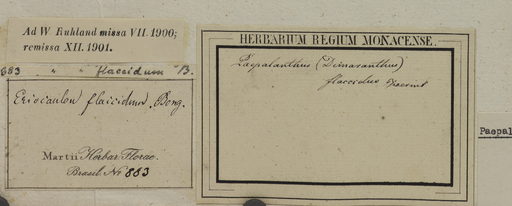 Ad W. Ruhland missa VII. 1900;
remissa XII. 1901.
883 " " flaccidum B.
Eriocaulon flaccidum. Bong.
Martii Herbar. Florae
Brasil. No 883
HERBARIUM REGIUM MONACENSE.
Paepalanthus (Dimaranthus)
flaccidus
Paepal